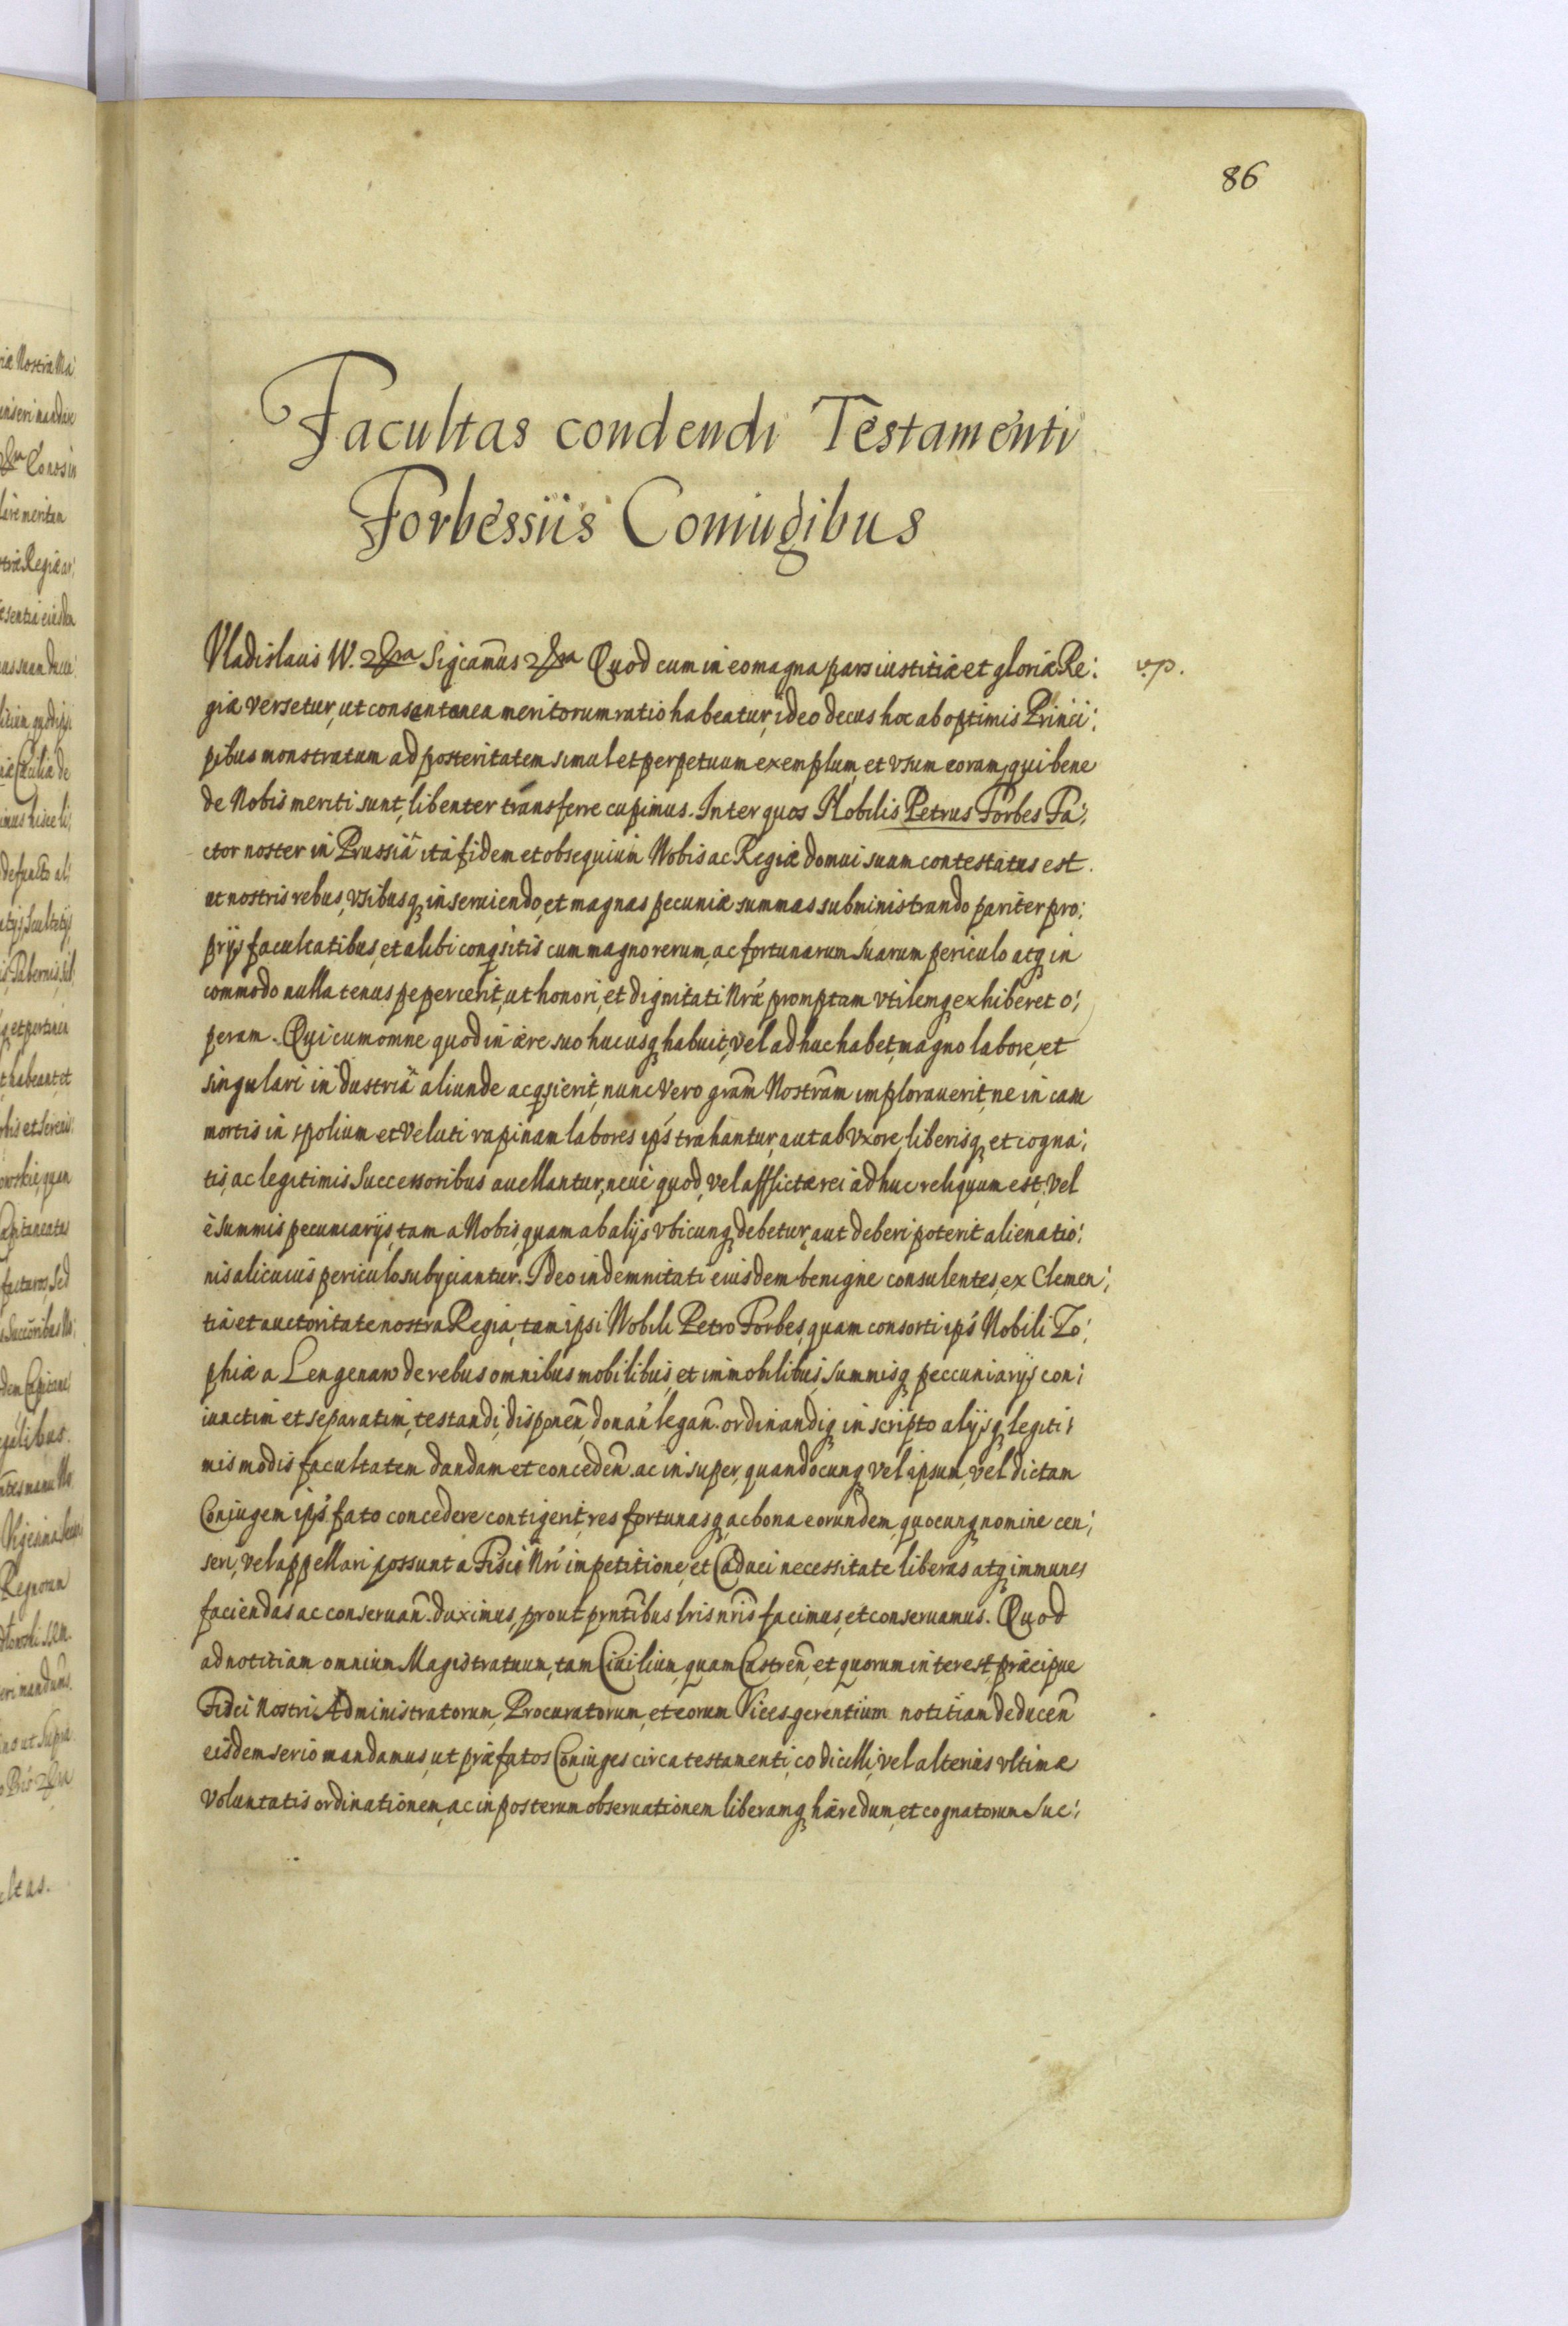 86
Facultas condendi Testamenti
Forbessiis Coniugibus
Vladislaus IV. Sigcam̃us Quod cum in eo magna pars iustitiæ et gloriæ Re:
v.p.
giæ versetur, ut consentanea meritorum ratio habeatur, ideo decus hoc ab optimis Princi:
pibus monstratum ad posteritatem simul et perpetuum exemplum, et vsum eorum, qui bene
de Nobis meriti sunt, libenter transferre cupimus. Inter quos Nobilis Petrus Forbes Fa:
ctor noster in Prussiâ ita fidem et obsequium Nobis ac Regiæ domui suum contestatus est.
ut nostris rebus, vsibusq inseruiendo, et magnas pecuniæ summas subministrando pariter pro:
prijs facultatibus, et alibi conqsitis cum magno rerum, ac fortunarum suarum periculo atq in
commodo nullatenus pepercerit, ut honori, et dignitati Nrã promptam vtilemq exhiberet o:
peram. Qui cum omne quod in ære suo hucusq habuit, vel adhuc habet, magno labore, et
singulari industriâ aliunde acqsierit, nunc vero grãm Nostrãm implorauerit, ne in casu
mortis in spolium et veluti rapinam labores ips̃ trahantur, aut ab Vxore, liberisq et cogna:
tis, ac legitimis Successoribus auellantur, neuè quod, vel afflictæ rei adhuc reliquum est, vel
è summis pecuniarijs, tam a Nobis, quam ab alijs vbicunq debetur, aut deberi poterit alienatio:
nis alicuius periculo subijciantur. Ideo indemnitati eiusdem benigne consulentes, ex Clemen:
tia et auctoritate nostra Regia, tam ipsi Nobili Petro Forbes, quam consorti ips̃ Nobili Zo:
phiæ a Lengenaw de rebus omnibus mobilibus, et immobilibus, summisq peccuniarijs con:
iunctim et separatim, testandi, disponeñ, donañ legañ. ordinandiq in scripto alijsq legiti:
mis modis facultatem dandam et concedeñ. ac insuper, quandocunq vel ipsum, vel dictam
Coniugem ips̃ fato concedere contigerit, res fortunasq, ac bona eorundem, quocunq nomine cen:
seri, vel appellari possunt a Fisci Nri impetitione, et Caduci necessitate liberas atq immunes
faciendas ac conseruañ. duximus, prout prñtibus lris nr̃is facimus, et conseruamus. Quod
ad notitiam omnium Magistratuum, tam Ciuilium, quam Castreñ, et quorum interest, præcipue
Fidei Nostri Administratorum, Procuratorum, et eorum Vices gerentium notitiam deduceñ
eisdem serio mandamus, ut præfatos Coniuges circa testamenti, codicilli, vel alterius vltimæ
voluntatis ordinationem, ac in posterum obseruationem liberamq hæredum, et cognatorum Suc: